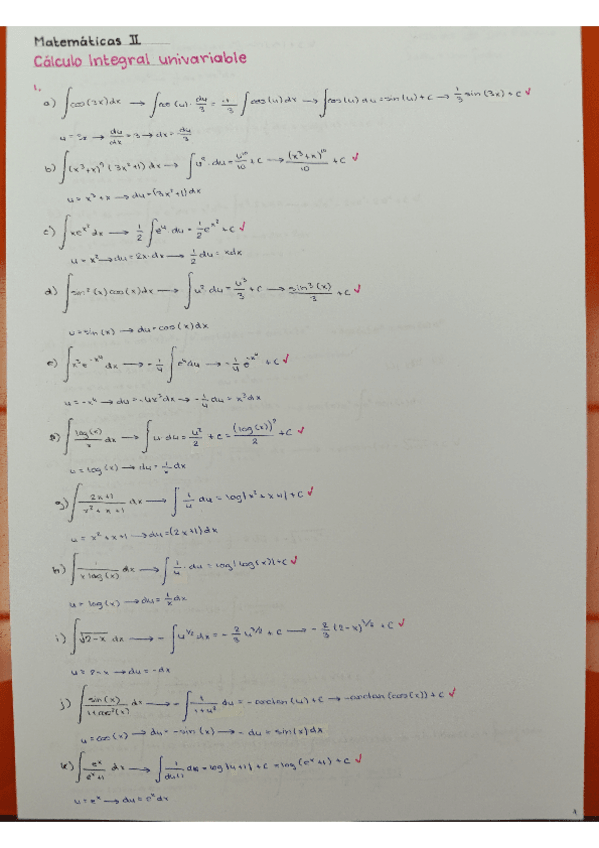 Matemáticas II
Cálculo Integral univariable
1.
a) ∫cos(3x)dx → ∫cos(u)·du/3 = 1/3 ∫cos(u)dx → ∫cos(u)du = sin(u)+C → 1/3 sin(3x)+C ✓
u = 3x → du/dx = 3 → dx = du/3
b) ∫(x³+x)⁹(3x²+1)dx → ∫u⁹·du = u¹⁰/10 + C → (x³+x)¹⁰/10 + C ✓
u = x³+x → du = (3x²+1)dx
c) ∫xe^(x²)dx → 1/2 ∫e^u·du = 1/2 e^(x²) + C ✓
u = x² → du = 2x·dx → 1/2 du = xdx
d) ∫sin²(x)cos(x)dx → ∫u²·du = u³/3 + C → sin³(x)/3 + C ✓
u = sin(x) → du = cos(x)dx
e) ∫x³e^(-x⁴)dx → -1/4 ∫e^u du → -1/4 e^(-x⁴) + C ✓
u = -x⁴ → du = -4x³dx → -1/4 du = x³dx
f) ∫log(x)/x dx → ∫u du = u²/2 + C = (log(x))²/2 + C ✓
u = log(x) → du = 1/x dx
g) ∫(2x+1)/(x²+x+1) dx → ∫1/u du = log|x²+x+1| + C ✓
u = x²+x+1 → du = (2x+1)dx
h) ∫1/(x log(x)) dx → ∫1/u·du = log|log(x)|+C ✓
u = log(x) → du = 1/x dx
i) ∫√(2-x) dx → -∫u^(1/2)dx = -2/3 u^(3/2) + C → -2/3 (2-x)^(3/2) + C ✓
u = 2-x → du = -dx
j) ∫sin(x)/(1+cos²(x)) dx → -∫1/(1+u²) du = -arctan(u)+C → -arctan(cos(x))+C ✓
u = cos(x) → du = -sin(x) → -du = sin(x)dx
k) ∫e^x/(e^x+1) dx → ∫1/(u+1) du = log|u+1| + C = log(e^x+1) + C ✓
u = e^x → du = e^x dx